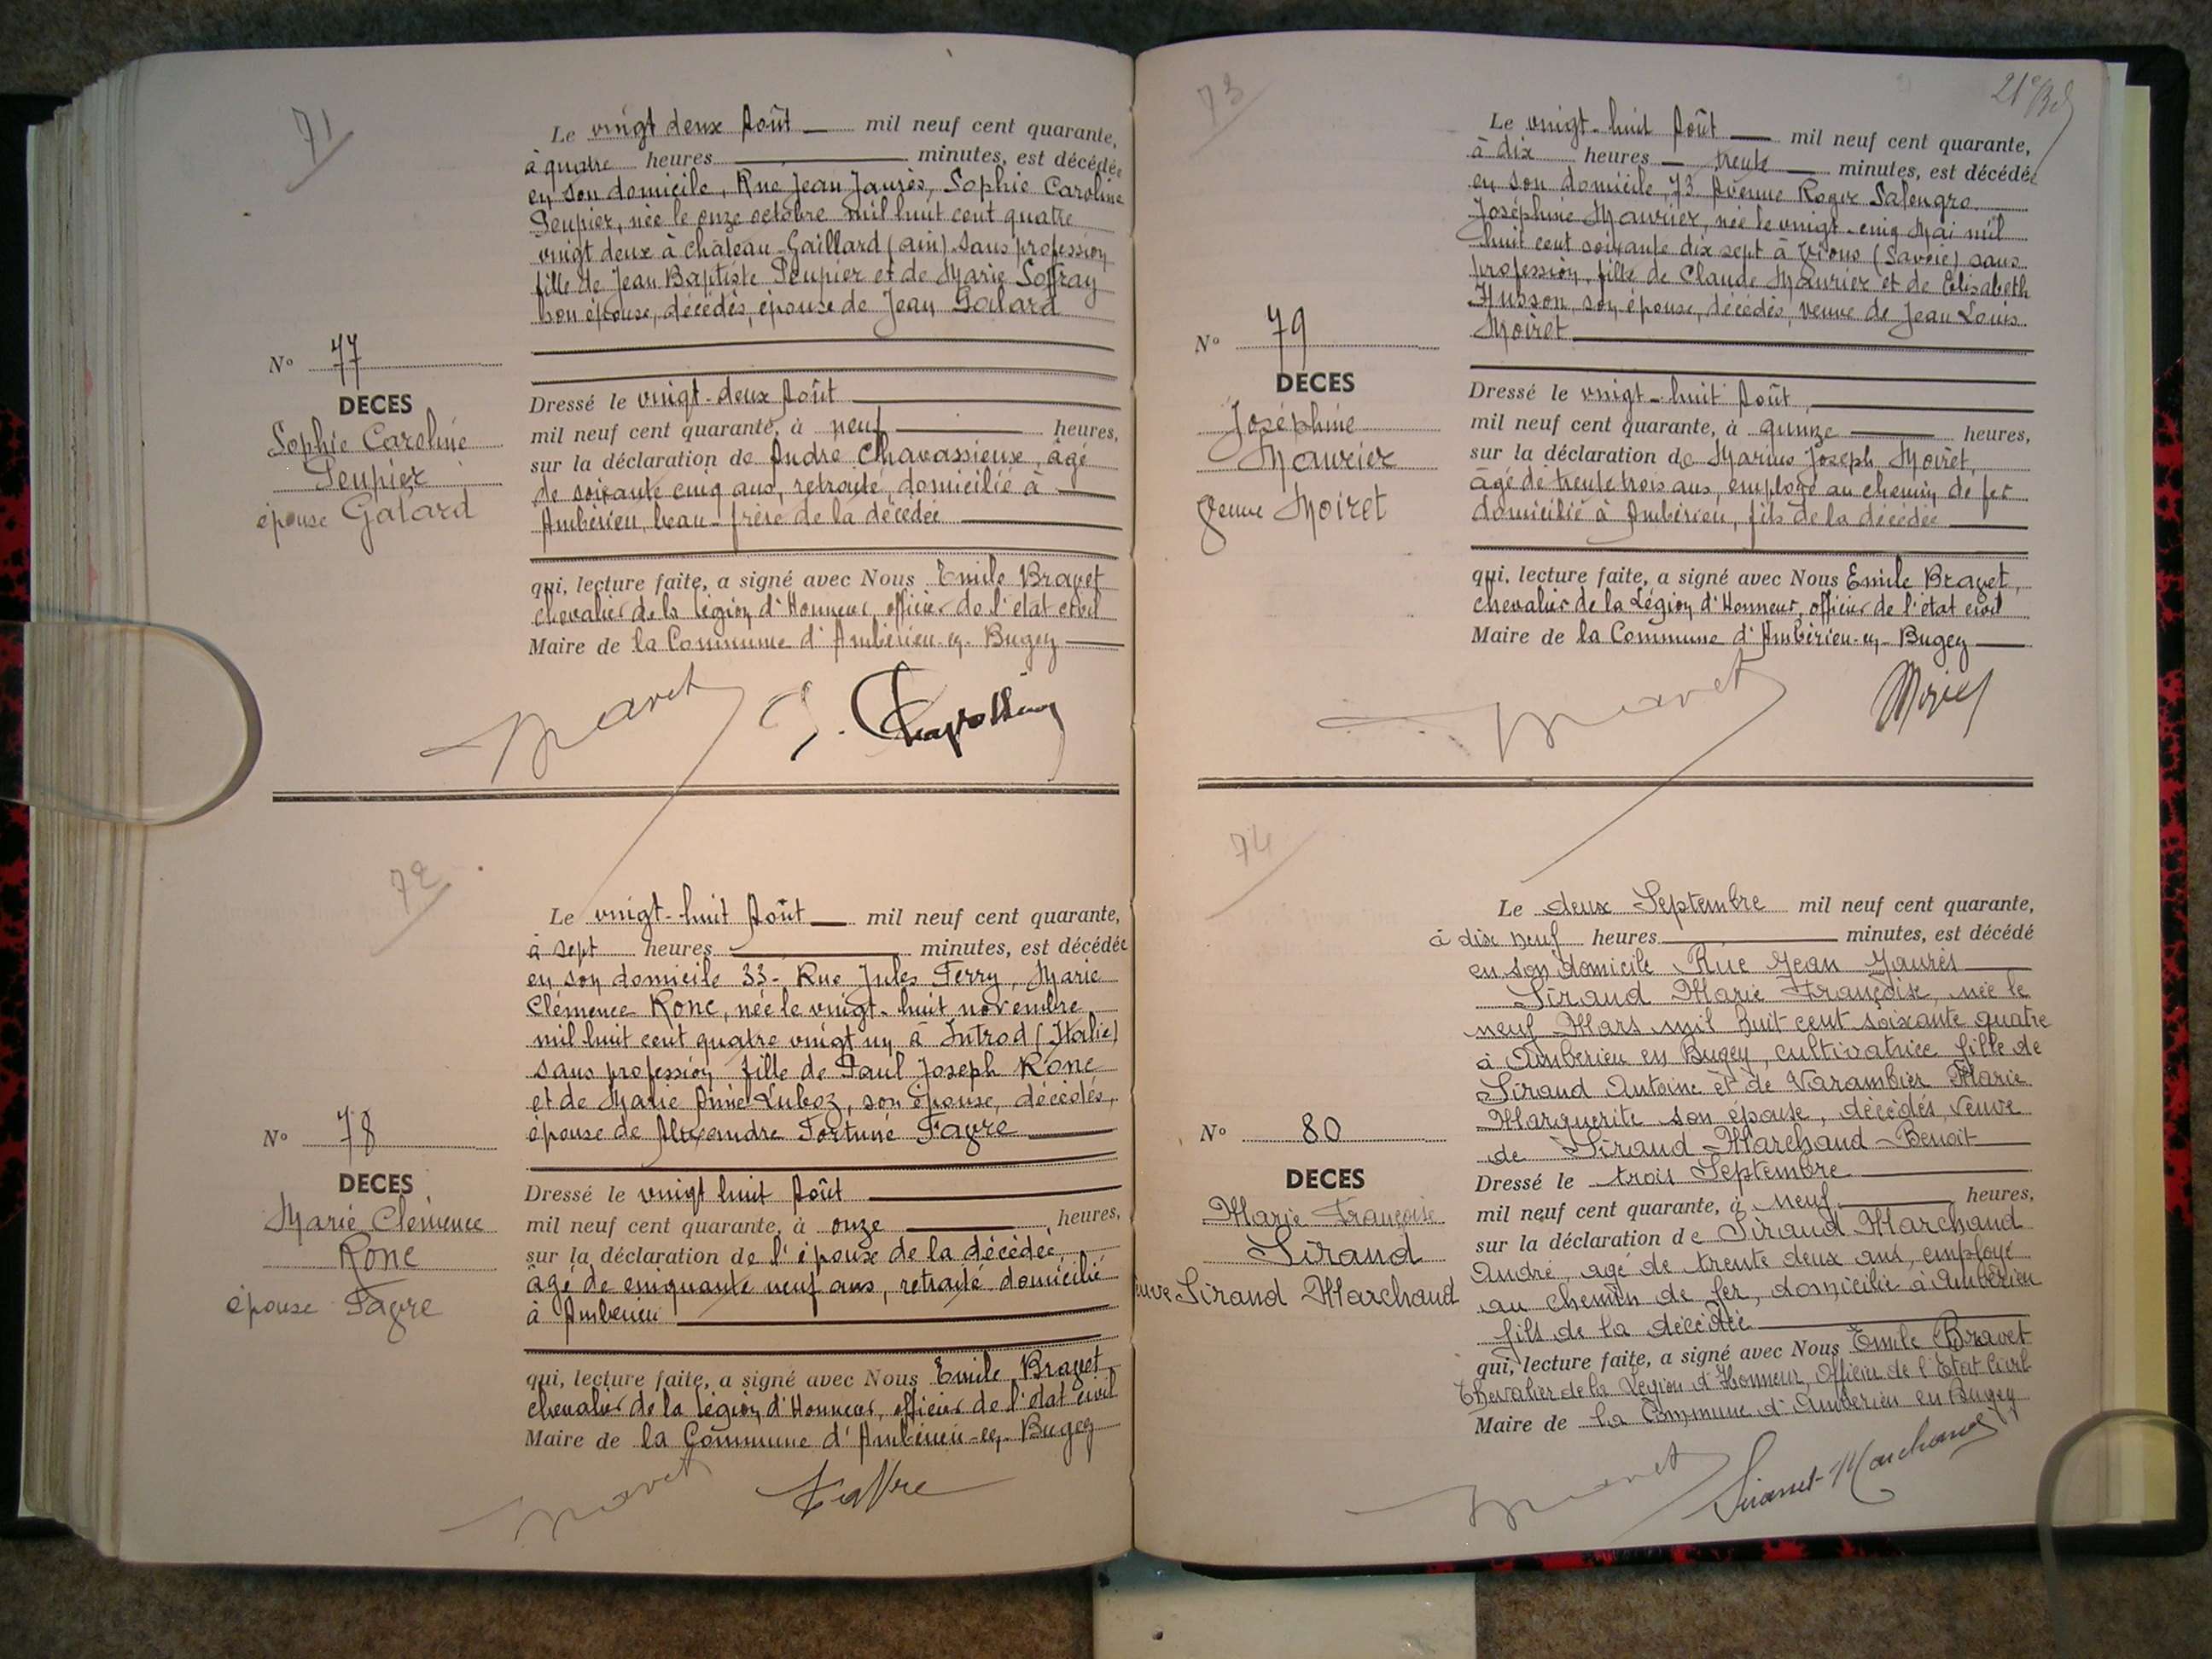 71
Le vingt deux Août mil neuf cent quarante,
à quatre heures minutes, est décédée
en son domicile, Rue Jean Jaurès, Sophie Caroline
Peupier, née le onze octobre mil huit cent quatre
vingt deux à Château-Gaillard (Ain) sans profession
fille de Jean Baptiste Peupier et de Marie Soffray
son épouse, décédés, épouse de Jean Galard
No 77
DECES
Sophie Caroline
Peupier
épouse Galard
Dressé le vingt-deux Août
mil neuf cent quarante, à neuf heures,
sur la déclaration de André Chavassieux, âgé
de soixante cinq ans, retraité, domicilié à
Ambérieu, beau-frère de la décédée
qui, lecture faite, a signé avec Nous Emile Bravet
chevalier de la Légion d'Honneur, officier de l'état civil
Maire de la Commune d'Ambérieu-en-Bugey
Bravet
72
Le vingt-huit Août mil neuf cent quarante,
à sept heures minutes, est décédée
en son domicile 33- Rue Jules Ferry, Marie
Clémence Ronc, née le vingt-huit novembre
mil huit cent quatre vingt un à Introd (Italie)
sans profession fille de Paul Joseph Ronc
et de Marie Luboz, son épouse, décédés,
épouse de Alexandre Fortuné Favre
No 78
DECES
Marie Clémence
Ronc
épouse Favre
Dressé le vingt huit Août
mil neuf cent quarante, à onze heures,
sur la déclaration de l'époux de la décédée,
âgé de cinquante neuf ans, retraité domicilié
à Ambérieu
qui, lecture faite, a signé avec Nous Emile Bravet,
chevalier de la Légion d'Honneur, officier de l'état civil
Maire de la Commune d'Ambérieu-en-Bugey
Bravet Favre
73
Le vingt-huit Août mil neuf cent quarante,
à dix heures trente minutes, est décédée
en son domicile, 73 Avenue Roger Salengro
Joséphine Maurier, née le vingt-cinq Mai mil
huit cent soixante dix sept à Vions (Savoie) sans
profession, fille de Claude Maurier et de Elisabeth
Husson, son épouse, décédés, veuve de Jean Louis
Moiret
No 79
DECES
Joséphine
Maurier
veuve Moiret
Dressé le vingt-huit Août,
mil neuf cent quarante, à quinze heures,
sur la déclaration de Marius Joseph Moiret,
âgé de trente trois ans, employé au chemin de fer
domicilié à Ambérieu, fils de la décédée
qui, lecture faite, a signé avec Nous Emile Bravet,
chevalier de la Légion d'Honneur, officier de l'état civil
Maire de la Commune d'Ambérieu-en-Bugey
Bravet Moiret
74
Le deux Septembre mil neuf cent quarante,
à dix neuf heures minutes, est décédé
en son domicile Rue Jean Jaurès
Sirand Marie Françoise, née le
neuf Mars mil huit cent soixante quatre
à Ambérieu en Bugey, cultivatrice fille de
Sirand Antoine et de Varambier Marie
Marguerite son épouse, décédés, veuve
de Sirand Marchand Benoit
No 80
DECES
Marie Françoise
Sirand
veuve Sirand Marchand
Dressé le trois Septembre
mil neuf cent quarante, à neuf heures,
sur la déclaration de Sirand Marchand
André, agé de trente deux ans, employé
au chemin de fer, domicilié à Ambérieu
fils de la décédée
qui, lecture faite, a signé avec Nous Emile Bravet
Chevalier de la Légion d'Honneur, Officier de l'Etat Civil
Maire de la Commune d'Ambérieu en Bugey
Bravet Sirand-Marchand